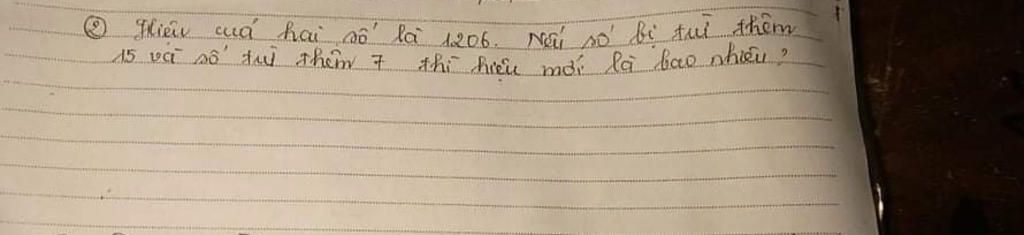 ② Hiệu cuả hai số là 1206. Nếu số bị trừ thêm
15 và số trừ thêm 7 thì hiệu mới là bao nhiêu?